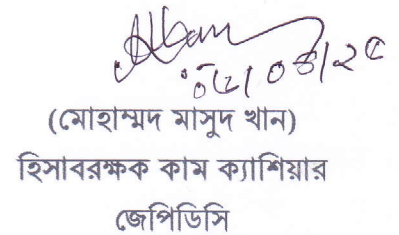 (মোহাম্মদ মাসুদ খান)
হিসাবরক্ষক কাম ক্যাশিয়ার
জেপিডিসি